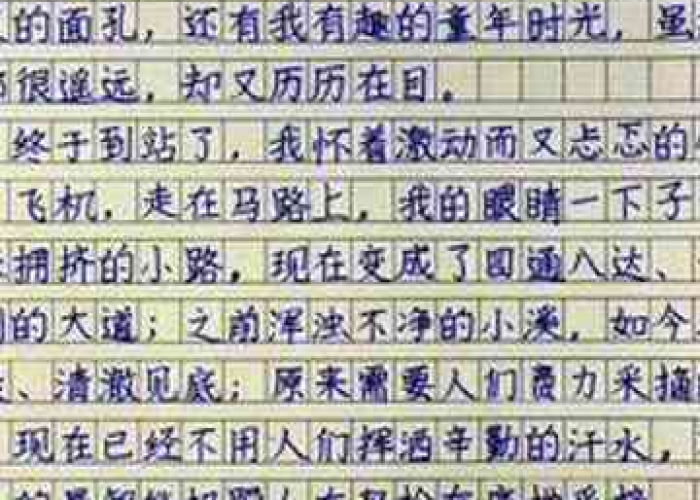 的面孔，还有我有趣的童年时光，虽
很遥远，却又历历在目。
终于到站了，我怀着激动而又忐忑的
飞机，走在马路上，我的眼睛一下子
拥挤的小路，现在变成了四通八达、
的大道；之前浑浊不净的小溪，如今
、清澈见底；原来需要人们费力采摘
现在已经不用人们挥洒辛勤的汗水，
的是智能机器人在